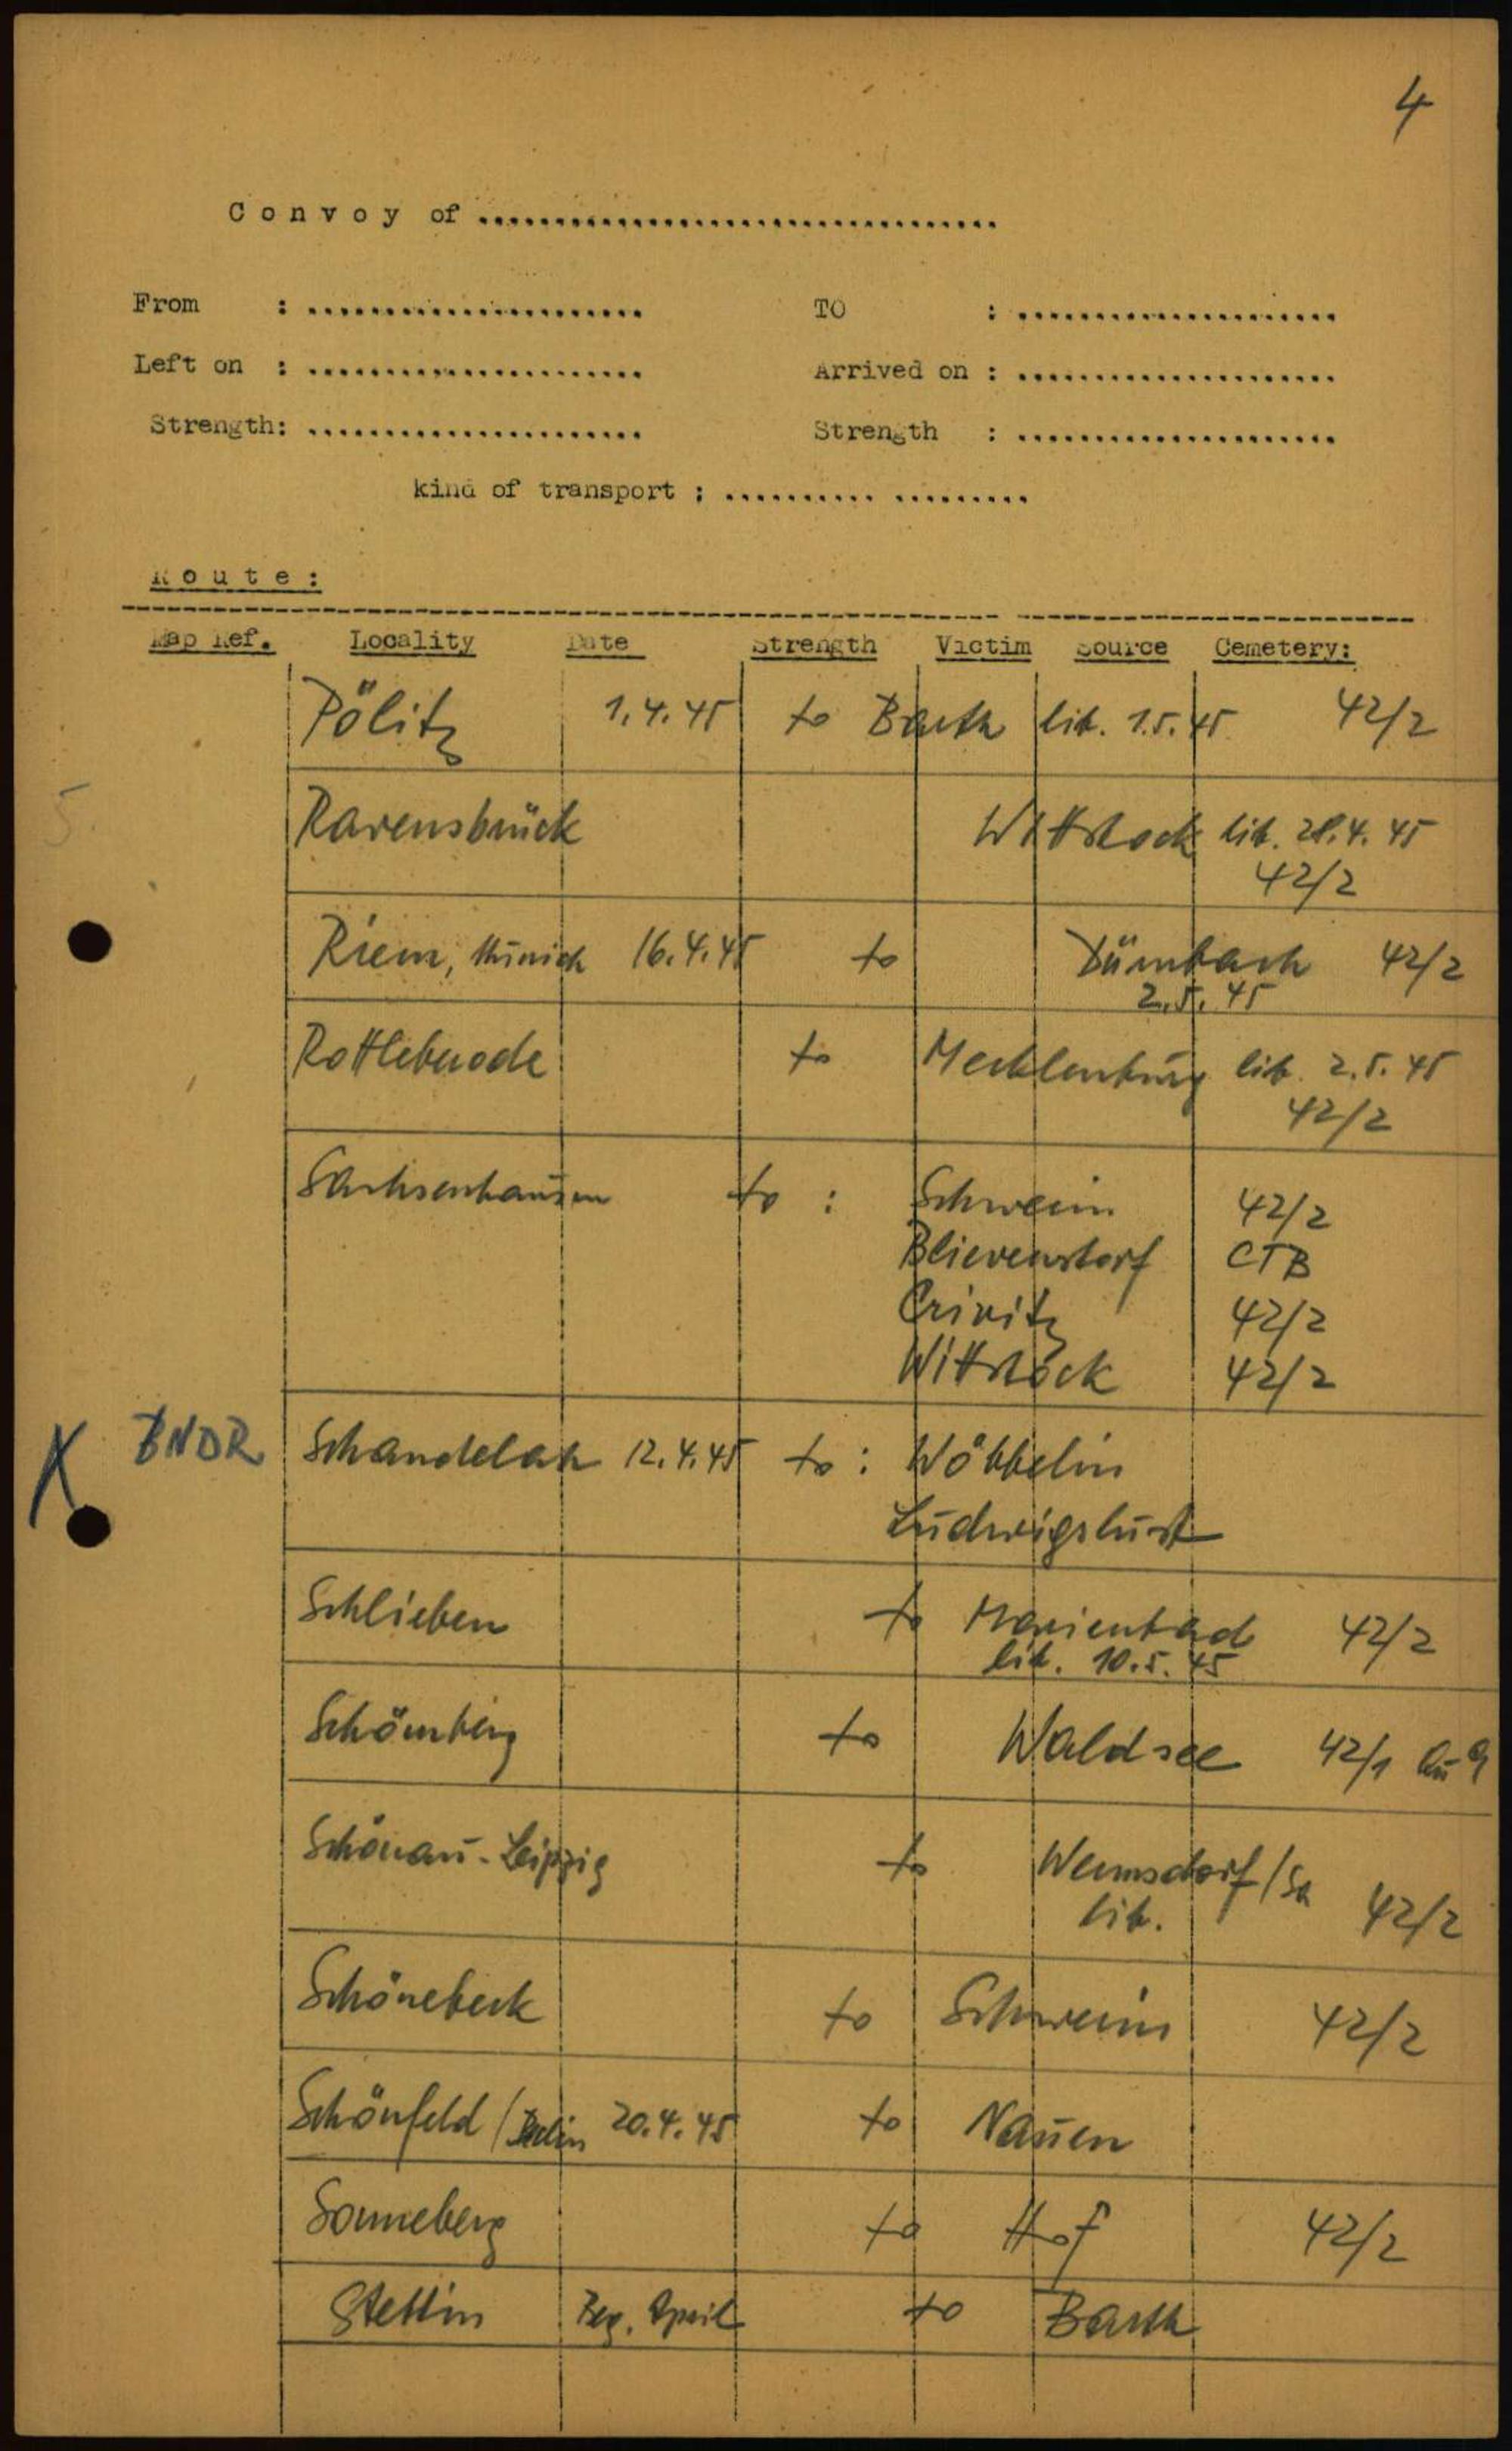 4
Convoy of ..................................
From : ...................... TO : .....................
Left on : ...................... Arrived on : .....................
Strength: ...................... Strength : .....................
kind of transport : .......... .........
Route:
Map Ref. Locality Date Strength Victim Source Cemetery:
Pölitz 1.4.45 to Barth lib. 1.5.45 42/2
5.
Ravensbrück Wittstock lib. 28.4.45
42/2
Riem, Munich 16.4.45 to Dürnbach 42/2
2.5.45
Rottleberode to Mecklenburg lib. 2.5.45
42/2
Sachsenhausen to : Schwerin 42/2
Blievenstorf CTB
Crivitz 42/2
Wittstock 42/2
X BNDR Schandelah 12.4.45 to : Wöbbelin
Ludwigslust
Schlieben to Marienbad 42/2
lib. 10.5.45
Schömberg to Waldsee 42/1
Schönau-Leipzig to Wermsdorf/Sa
lib. 42/2
Schönebeck to Schwerin 42/2
Schönfeld/Berlin 20.4.45 to Nauen
Sonneberg to Hof 42/2
Stettin Beg. April to Barth